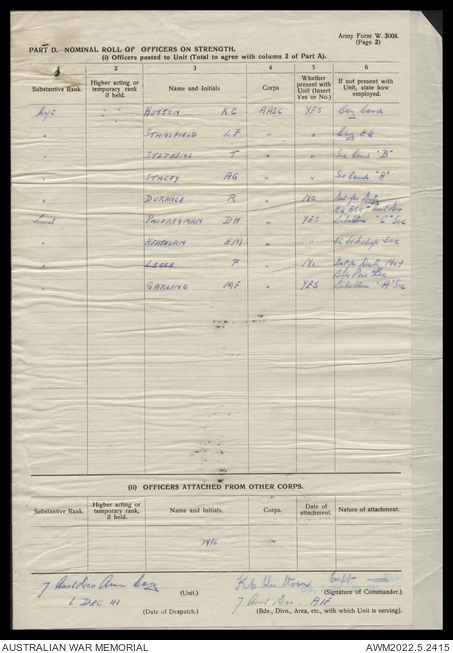 Army Form W. 3008.
(Page 2)
PART D.-NOMINAL ROLL OF OFFICERS ON STRENGTH.
(i) Officers posted to Unit (Total to agree with column 2 of Part A).
1 2 3 4 5 6
Substantive Rank. Higher acting or temporary rank if held. Name and Initials Corps Whether present with Unit (Insert Yes or No.) If not present with Unit, state how employed.
Capt " " HUTTON KC AASC YES Coy Comd
" STANSFIELD LF " " Coy HQ
" STEPHENS T " " Sec Comd "B"
" STACEY AG " " Sec Comd "A"
" R " NO
Lieut PALFREYMAN DH " YES "C" Sec
" HM " " Workshops Sec
" LEGGE F " NO
" GARLING MF " YES "A" Sec
(ii) OFFICERS ATTACHED FROM OTHER CORPS.
Substantive Rank. Higher acting or temporary rank, if held. Name and Initials. Corps. Date of attachment. Nature of attachment.
NIL
7 Aust Div Amm Coy (Unit.) KC Hutton Capt (Signature of Commander.)
1 DEC 41 (Date of Despatch.) 7 Aust Div. AIF
(Bde., Divn., Area, etc., with which Unit is serving).
AUSTRALIAN WAR MEMORIAL AWM2022.5.2415